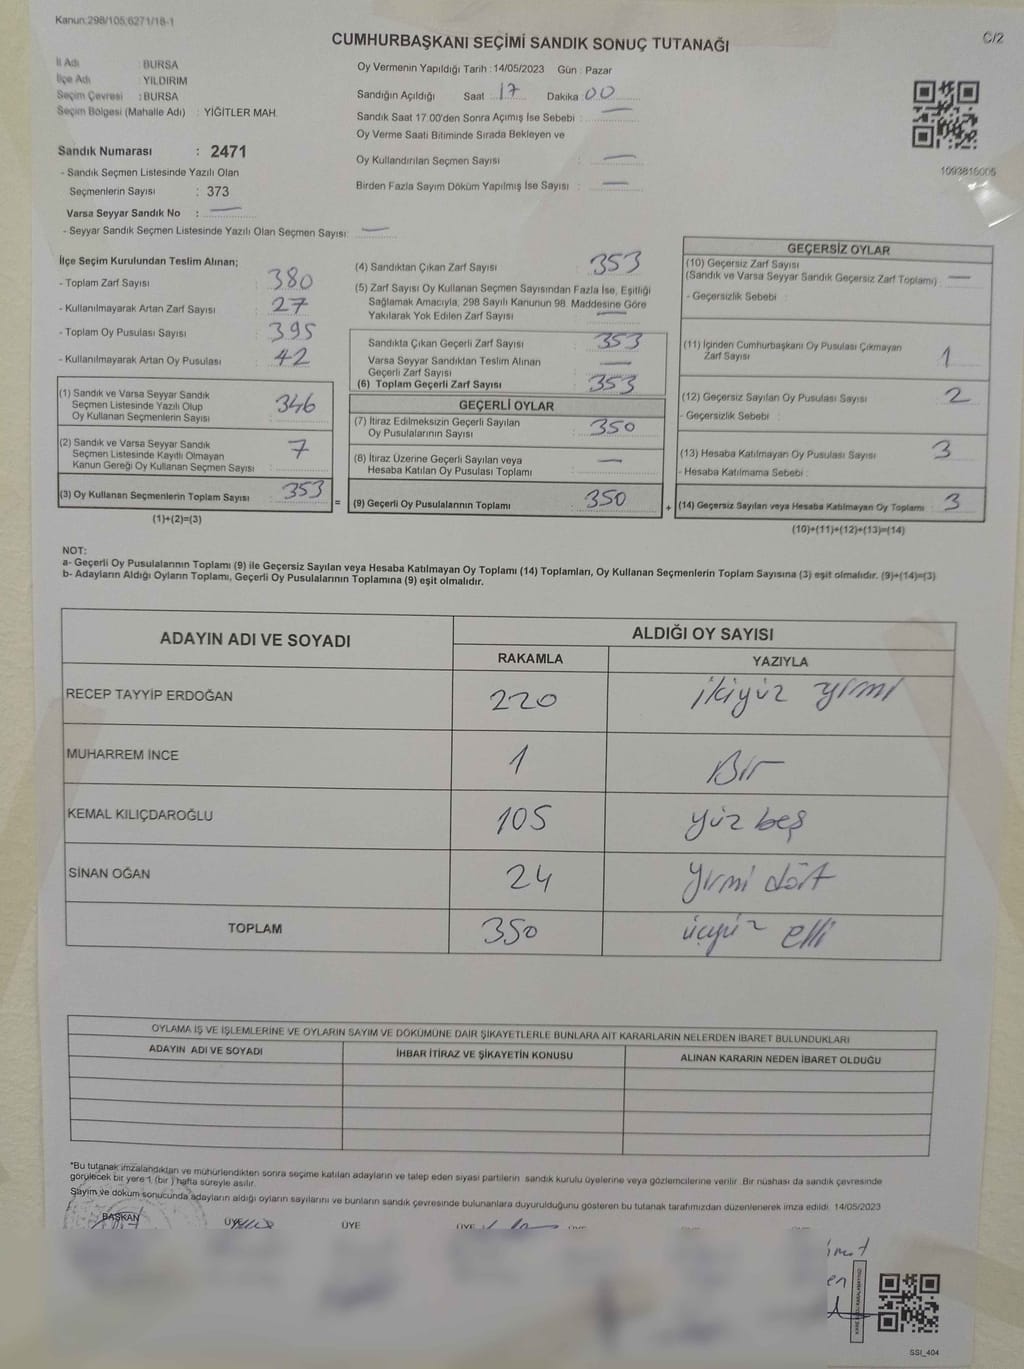 Kanun:298/105;6271/18-1
C/2
CUMHURBAŞKANI SEÇİMİ SANDIK SONUÇ TUTANAĞI
İl Adı : BURSA
İlçe Adı : YILDIRIM
Seçim Çevresi : BURSA
Seçim Bölgesi (Mahalle Adı) : YİĞİTLER MAH.
Sandık Numarası : 2471
- Sandık Seçmen Listesinde Yazılı Olan
Seçmenlerin Sayısı : 373
Varsa Seyyar Sandık No : —
- Seyyar Sandık Seçmen Listesinde Yazılı Olan Seçmen Sayısı: —
Oy Vermenin Yapıldığı Tarih : 14/05/2023 Gün : Pazar
Sandığın Açıldığı Saat 17 Dakika 00
Sandık Saat 17.00'den Sonra Açımış İse Sebebi : —
Oy Verme Saati Bitiminde Sırada Bekleyen ve
Oy Kullandırılan Seçmen Sayısı : —
Birden Fazla Sayım Döküm Yapılmış İse Sayısı : —
1093815005
İlçe Seçim Kurulundan Teslim Alınan;
- Toplam Zarf Sayısı : 380
- Kullanılmayarak Artan Zarf Sayısı : 27
- Toplam Oy Pusulası Sayısı : 395
- Kullanılmayarak Artan Oy Pusulası : 42
(1) Sandık ve Varsa Seyyar Sandık
Seçmen Listesinde Yazılı Olup
Oy Kullanan Seçmenlerin Sayısı : 346
(2) Sandık ve Varsa Seyyar Sandık
Seçmen Listesinde Kayıtlı Olmayan
Kanun Gereği Oy Kullanan Seçmen Sayısı : 7
(3) Oy Kullanan Seçmenlerin Toplam Sayısı : 353
(1)+(2)=(3)
=
(4) Sandıktan Çıkan Zarf Sayısı : 353
(5) Zarf Sayısı Oy Kullanan Seçmen Sayısından Fazla İse, Eşitliği
Sağlamak Amacıyla, 298 Sayılı Kanunun 98. Maddesine Göre
Yakılarak Yok Edilen Zarf Sayısı : —
Sandıkta Çıkan Geçerli Zarf Sayısı : 353
Varsa Seyyar Sandıktan Teslim Alınan
Geçerli Zarf Sayısı : —
(6) Toplam Geçerli Zarf Sayısı : 353
GEÇERLİ OYLAR
(7) İtiraz Edilmeksizin Geçerli Sayılan
Oy Pusulalarının Sayısı : 350
(8) İtiraz Üzerine Geçerli Sayılan veya
Hesaba Katılan Oy Pusulası Toplamı : —
(9) Geçerli Oy Pusulalarının Toplamı : 350
+
GEÇERSİZ OYLAR
(10) Geçersiz Zarf Sayısı
(Sandık ve Varsa Seyyar Sandık Geçersiz Zarf Toplamı) : —
- Geçersizlik Sebebi :
(11) İçinden Cumhurbaşkanı Oy Pusulası Çıkmayan
Zarf Sayısı : 1
(12) Geçersiz Sayılan Oy Pusulası Sayısı : 2
- Geçersizlik Sebebi :
(13) Hesaba Katılmayan Oy Pusulası Sayısı : 3
- Hesaba Katılmama Sebebi :
(14) Geçersiz Sayılan veya Hesaba Katılmayan Oy Toplamı : 3
(10)+(11)+(12)+(13)=(14)
NOT:
a- Geçerli Oy Pusulalarının Toplamı (9) ile Geçersiz Sayılan veya Hesaba Katılmayan Oy Toplamı (14) Toplamları, Oy Kullanan Seçmenlerin Toplam Sayısına (3) eşit olmalıdır. (9)+(14)=(3)
b- Adayların Aldığı Oyların Toplamı, Geçerli Oy Pusulalarının Toplamına (9) eşit olmalıdır.
ADAYIN ADI VE SOYADI
ALDIĞI OY SAYISI
RAKAMLA YAZIYLA
RECEP TAYYİP ERDOĞAN 220 ikiyüz yirmi
MUHARREM İNCE 1 Bir
KEMAL KILIÇDAROĞLU 105 yüz beş
SİNAN OĞAN 24 yirmi dört
TOPLAM 350 üçyüz elli
OYLAMA İŞ VE İŞLEMLERİNE VE OYLARIN SAYIM VE DÖKÜMÜNE DAİR ŞİKAYETLERLE BUNLARA AİT KARARLARIN NELERDEN İBARET BULUNDUKLARI
ADAYIN ADI VE SOYADI İHBAR İTİRAZ VE ŞİKAYETİN KONUSU ALINAN KARARIN NEDEN İBARET OLDUĞU
"Bu tutanak imzalandıktan ve mühürlendikten sonra seçime katılan adayların ve talep eden siyasi partilerin sandık kurulu üyelerine veya gözlemcilerine verilir. Bir nüshası da sandık çevresinde
görülecek bir yere 1 (bir ) hafta süreyle asılır.
Sayım ve döküm sonucunda adayların aldığı oyların sayılarını ve bunların sandık çevresinde bulunanlara duyurulduğunu gösteren bu tutanak tarafımızdan düzenlenerek imza edildi. 14/05/2023
BAŞKAN ÜYE ÜYE ÜYE
SSI_404